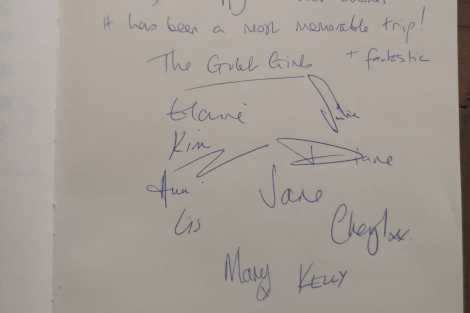 It has been a most memorable trip!
The Girls + fantastic
Elaine Julie
Kim
Diane
Ann
Jane
Lis
Cheryl xx
Mary KELLY